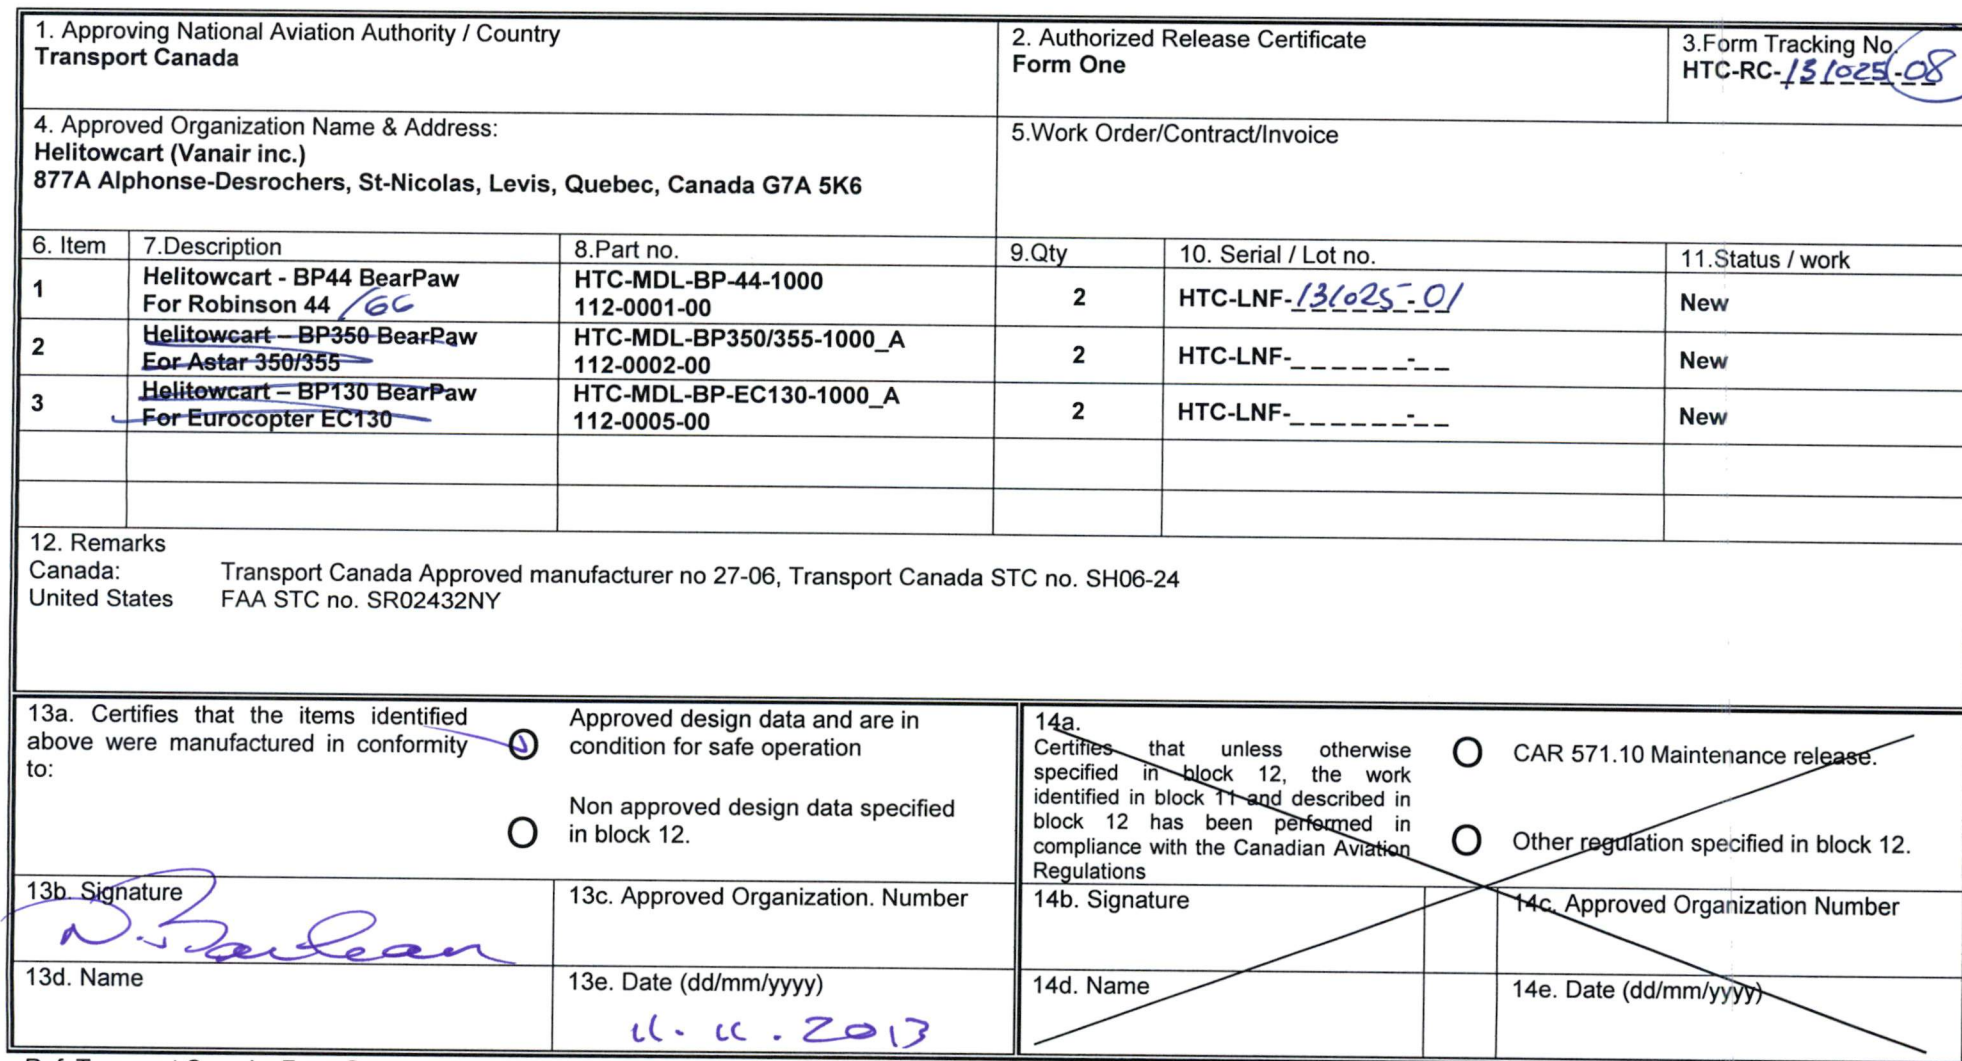 1. Approving National Aviation Authority / Country
Transport Canada
2. Authorized Release Certificate
Form One
3.Form Tracking No.
HTC-RC-131025-08
4. Approved Organization Name & Address:
Helitowcart (Vanair inc.)
877A Alphonse-Desrochers, St-Nicolas, Levis, Quebec, Canada G7A 5K6
5.Work Order/Contract/Invoice
6. Item 7.Description 8.Part no. 9.Qty 10. Serial / Lot no. 11.Status / work
1 Helitowcart - BP44 BearPaw
For Robinson 44 /66 HTC-MDL-BP-44-1000
112-0001-00 2 HTC-LNF-131025-01 New
2 Helitowcart – BP350 BearPaw
For Astar 350/355 HTC-MDL-BP350/355-1000_A
112-0002-00 2 HTC-LNF-_ _ _ _ _ _-_ _ New
3 Helitowcart – BP130 BearPaw
For Eurocopter EC130 HTC-MDL-BP-EC130-1000_A
112-0005-00 2 HTC-LNF-_ _ _ _ _ _-_ _ New
12. Remarks
Canada: Transport Canada Approved manufacturer no 27-06, Transport Canada STC no. SH06-24
United States FAA STC no. SR02432NY
13a. Certifies that the items identified
above were manufactured in conformity
to:
Approved design data and are in
condition for safe operation
Non approved design data specified
in block 12.
14a.
Certifies that unless otherwise
specified in block 12, the work
identified in block 11 and described in
block 12 has been performed in
compliance with the Canadian Aviation
Regulations
CAR 571.10 Maintenance release.
Other regulation specified in block 12.
13b. Signature
13c. Approved Organization. Number
14b. Signature
14c. Approved Organization Number
13d. Name
13e. Date (dd/mm/yyyy)
11.11.2013
14d. Name
14e. Date (dd/mm/yyyy)